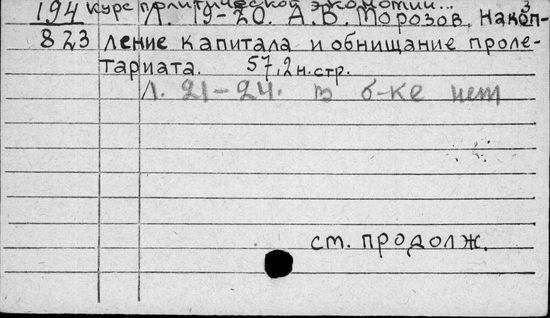 курс политической экономии... 3
194 Л. 19-20. А.В. Морозов. Накоп-
823 ление капитала и обнищание проле-
тариата. 57,2н.стр.
Л. 21-24. в б-ке нет
ст. продолж.